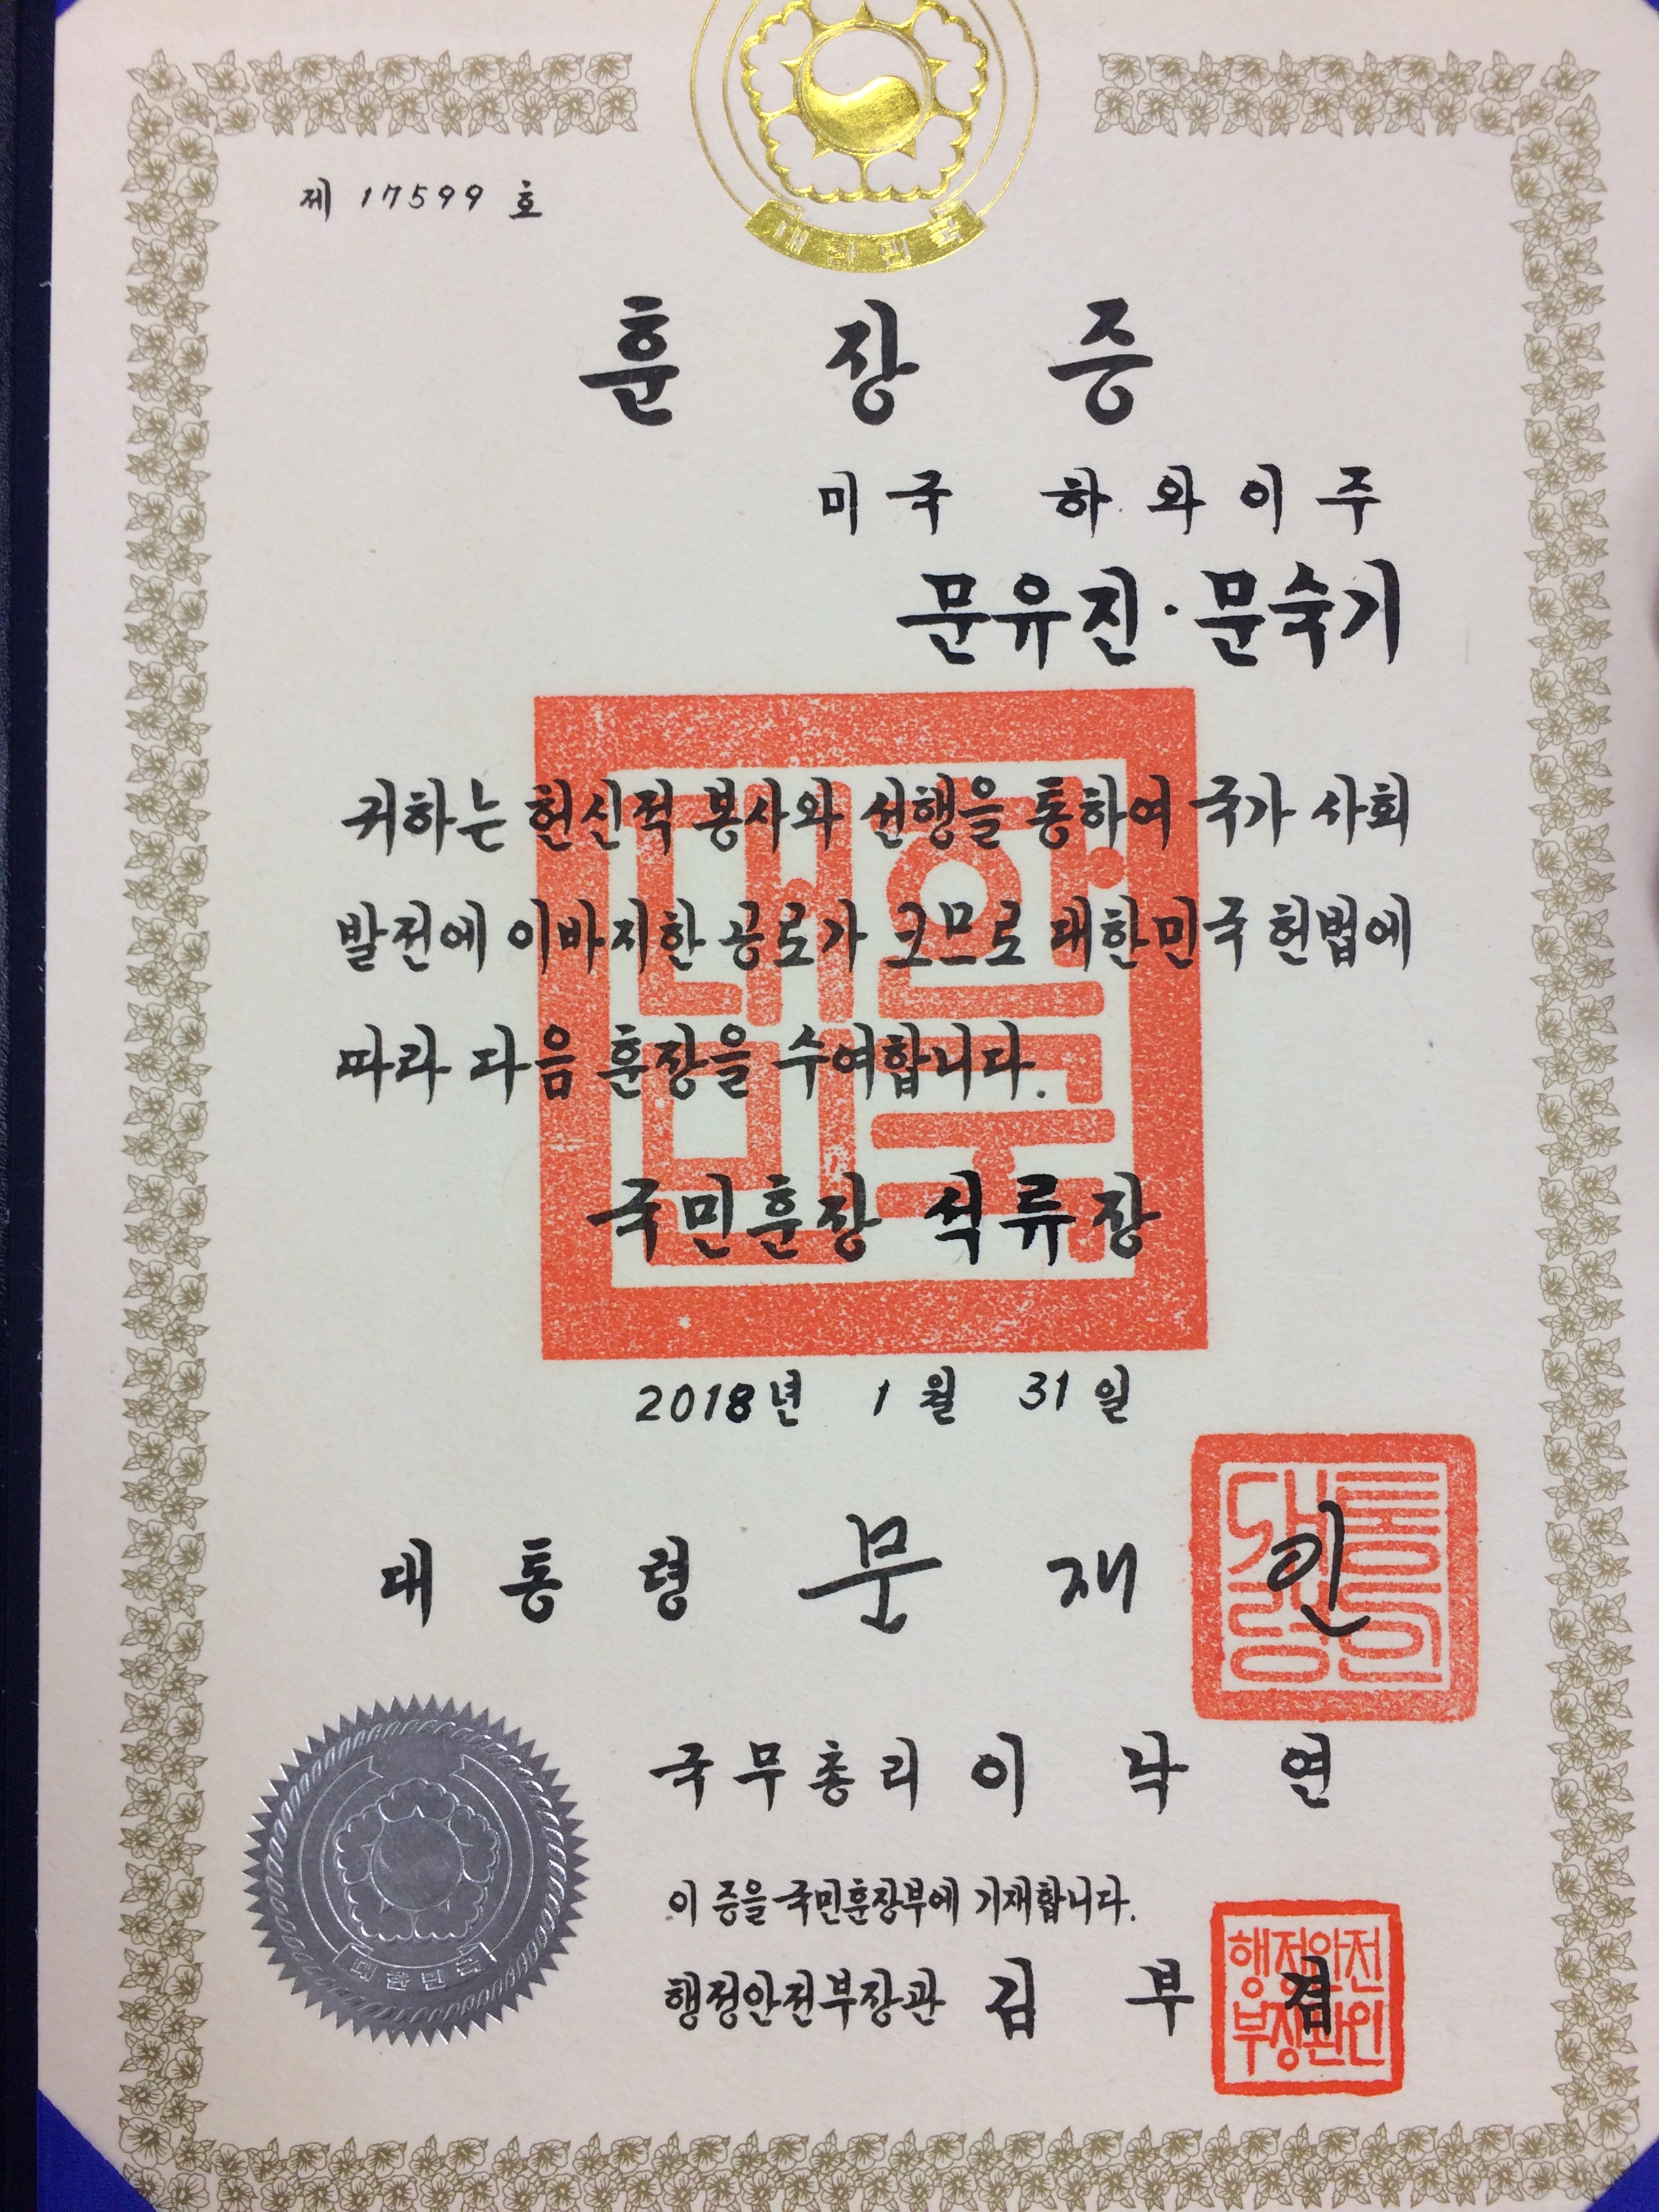 대한민국
제 17599 호
훈장증
미국 하와이주
문유진·문숙기
귀하는 헌신적 봉사와 선행을 통하여 국가 사회
발전에 이바지한 공로가 크므로 대한민국 헌법에
따라 다음 훈장을 수여합니다.
국민훈장 석류장
대한
민국
2018년 1월 31일
대통령 문재인
대통
령인
국무총리 이낙연
이 증을 국민훈장부에 기재합니다.
대한민국
행정안전부장관 김부겸
행정안전
부장관인